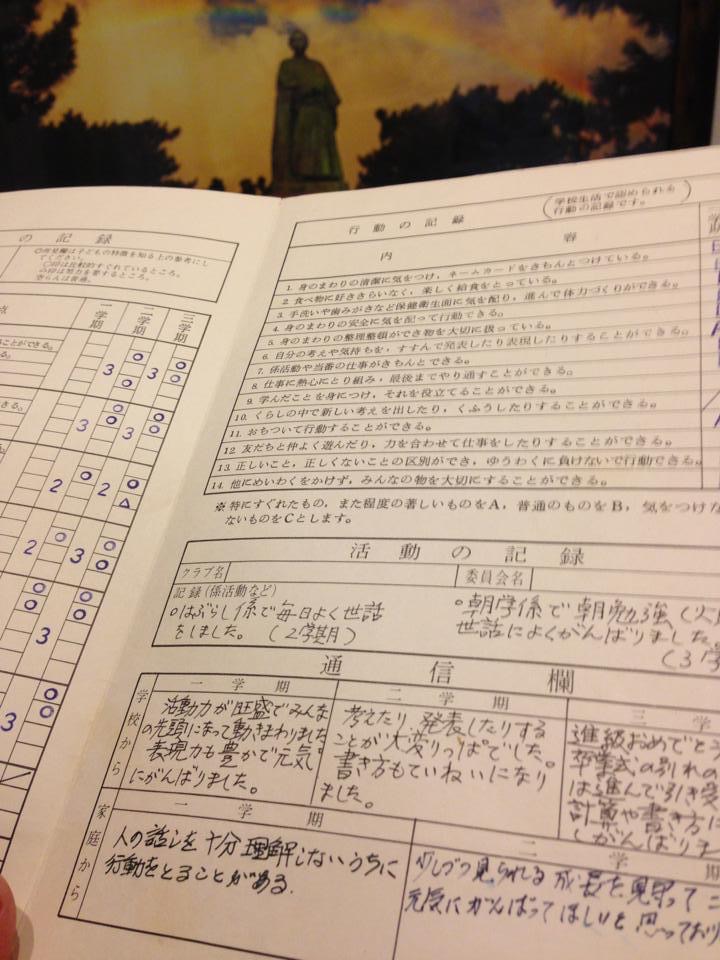 の記録
〇所見欄は子どもの特徴を知る上の参考にし
てください。
〇印は比較的すぐれているところ。
△印は努力を要するところ。
空らんは普通。
点
一学期
二学期
三学期
ことができる。
3
〇
3
〇
〇
きる。
3
〇
〇
3
〇
〇
2
〇
2
〇
△
2
〇
3
〇
〇
〇
〇
3
〇
〇
3
〇
〇
行動の記録
(学校生活で認められる
行動の記録です。)
内容
1. 身のまわりの清潔に気をつけ、ネームカードをきちんとつけている。
2. 食べ物に好ききらいなく、楽しく給食をとっている。
3. 手洗いや歯みがきなど保健衛生面に気を配り、進んで体力づくりができる。
4. 身のまわりの安全に気を配って行動できる。
5. 身のまわりの整理整頓ができ物を大切に扱っている。
6. 自分の考えや気持ちを、すすんで発表したり表現したりすることができる。
7. 係活動や当番の仕事がきちんとできる。
8. 仕事に熱心にとり組み、最後までやり通すことができる。
9. 学んだことを身につけ、それを役立てることができる。
10. くらしの中で新しい考えを出したり、くふうしたりすることができる。
11. おちついて行動することができる。
12. 友だちと仲よく遊んだり、力を合わせて仕事をしたりすることができる。
13. 正しいこと、正しくないことの区別ができ、ゆうわくに負けないで行動できる。
14. 他にめいわくをかけず、みんなの物を大切にすることができる。
※特にすぐれたもの、また程度の著しいものをA、普通のものをB、気をつけな
ないものをCとします。
活動の記録
クラブ名
委員会名
記録(係活動など)
〇はぶらし係で毎日よく世話
をしました。(2学期)
〇朝学係で朝勉強(火
世話によくがんばりました。
(3学
通信欄
学校から
一学期
活動力が旺盛でみんな
の先頭になって動きまわりました。
表現力も豊かで元気
にがんばりました。
二学期
考えたり、発表したりする
ことが大変りっぱでした。
書き方もていねいになり
ました。
三学
進級おめでとう
卒業式の別れの
は進んで引き受
計算や書き方に
しがんばりま
家庭から
一学期
人の話しを十分理解しないうちに
行動をとることがある。
二学期
少しづつ見られる成長を見守って
元気にがんばってほしいと思っており